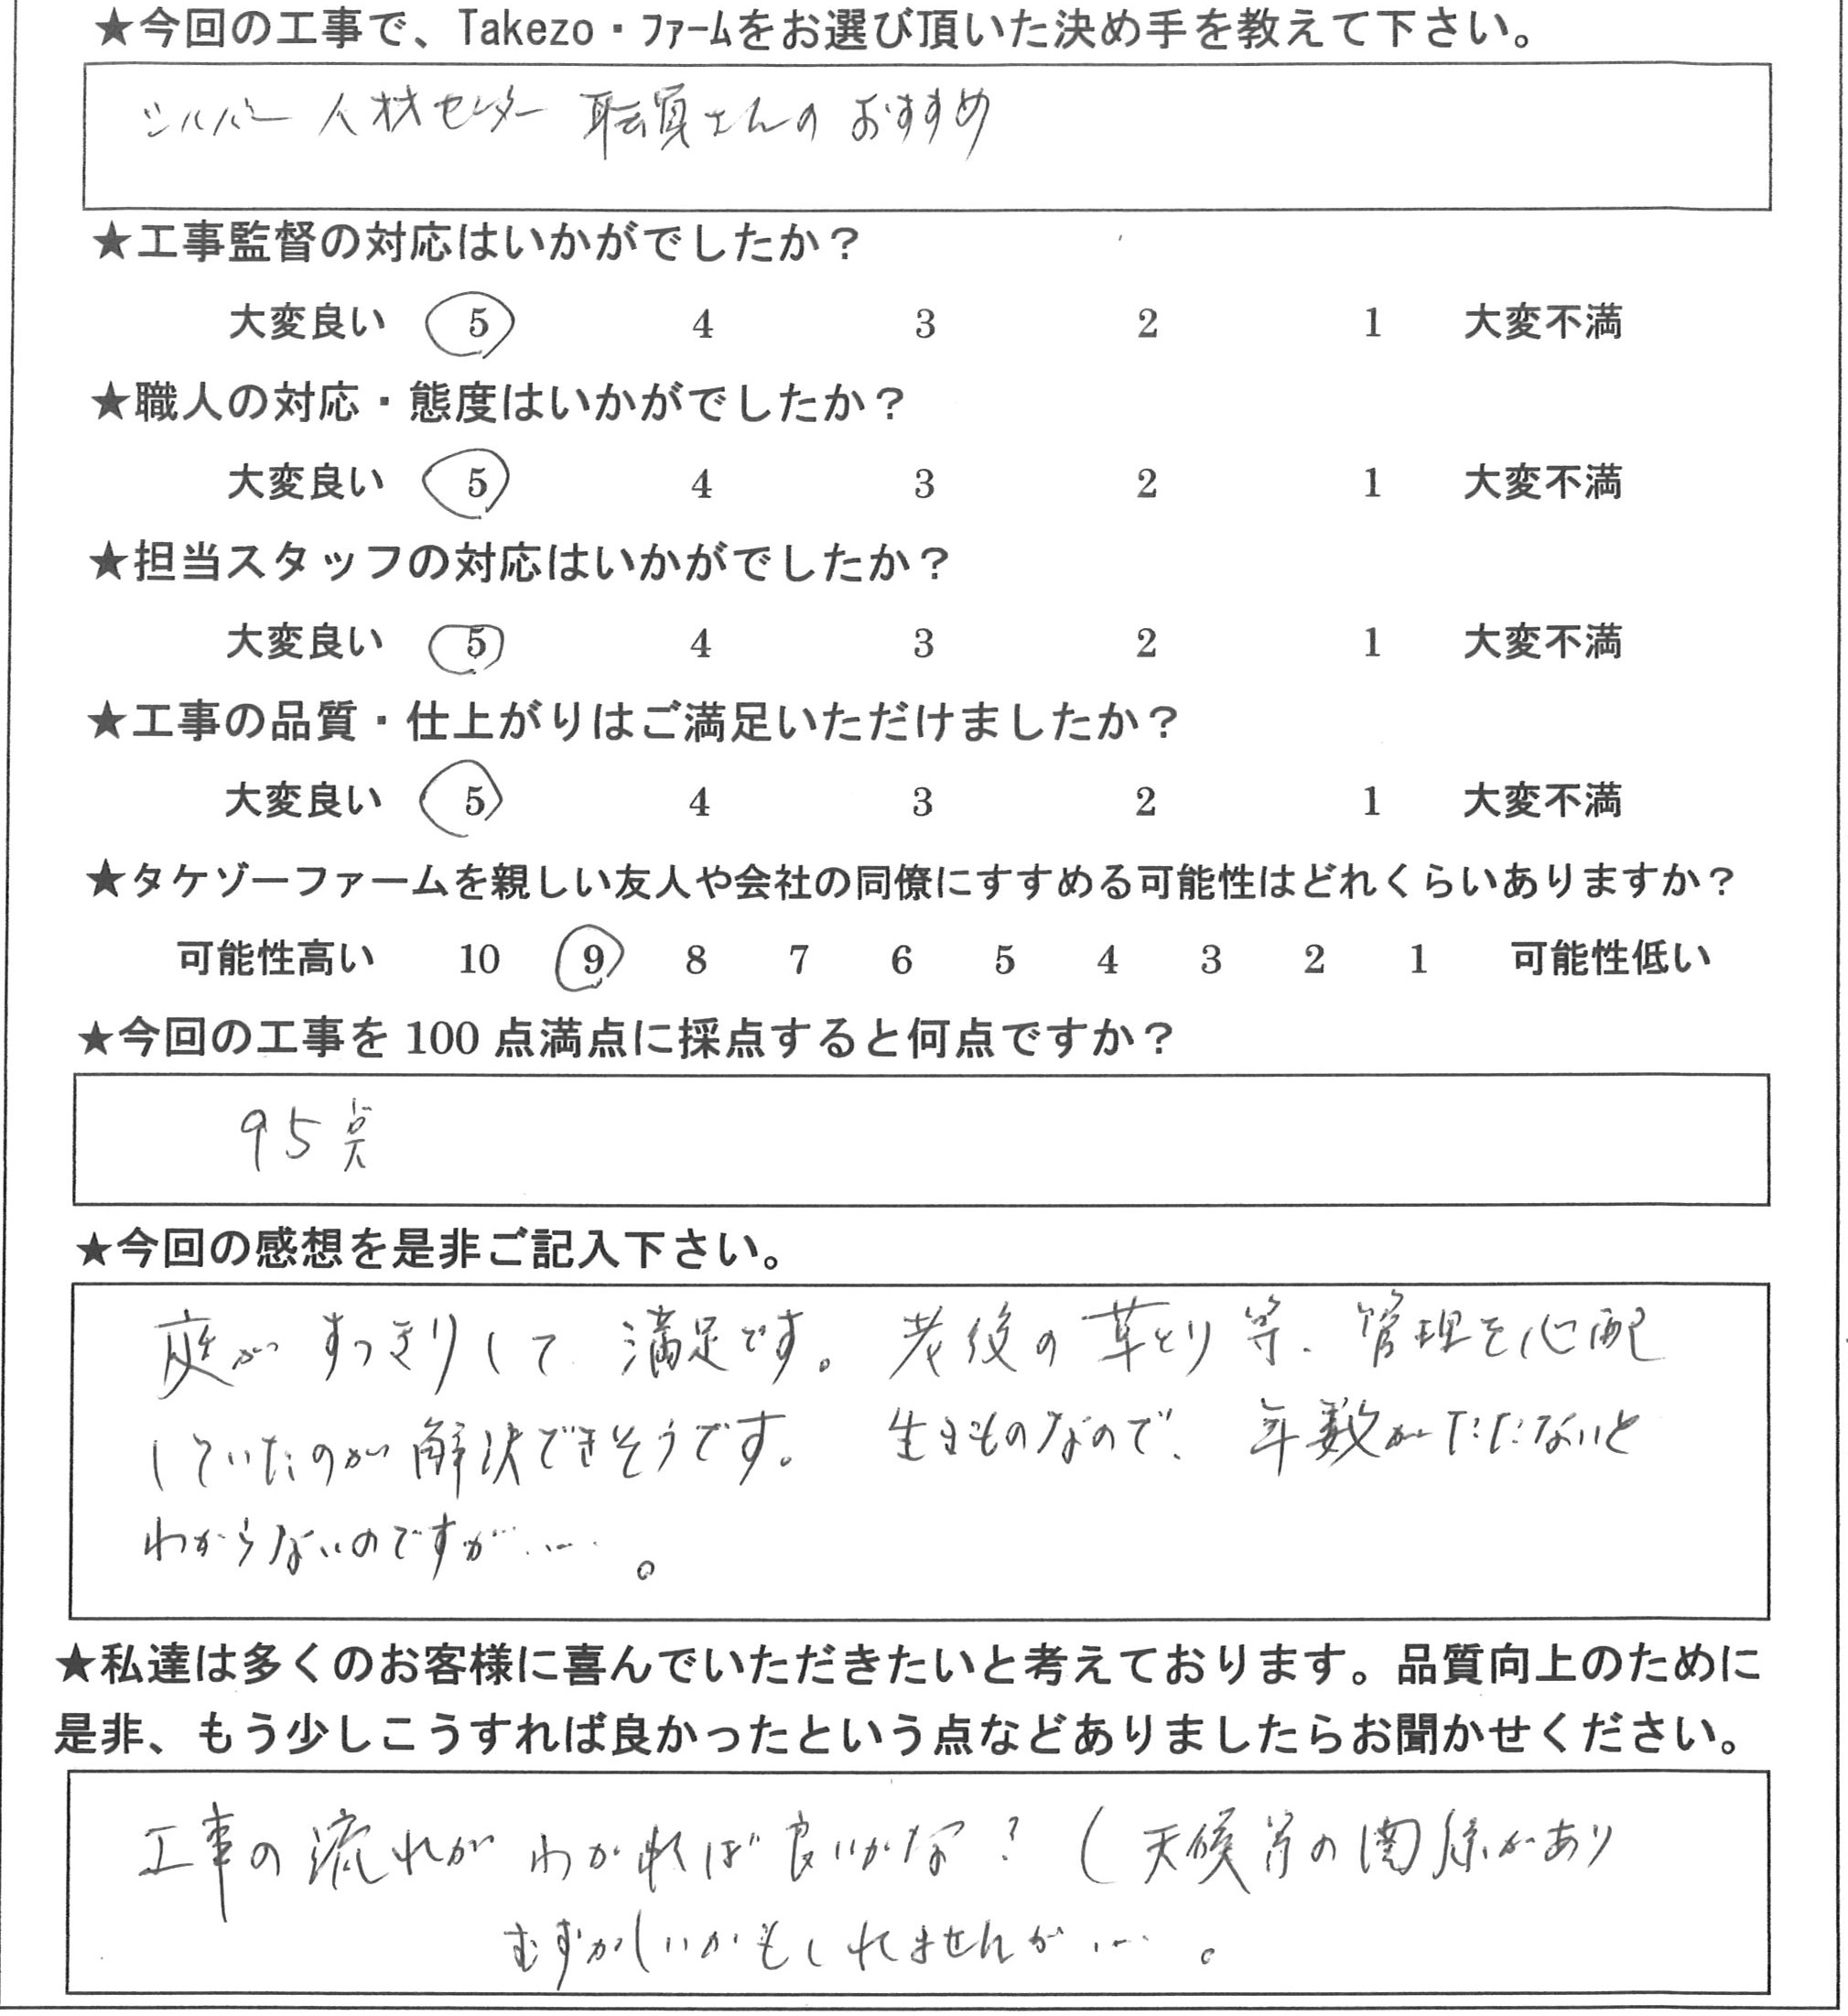 ★今回の工事で、Takezo・ファームをお選び頂いた決め手を教えて下さい。
シルバー人材センター職員さんのおすすめ
★工事監督の対応はいかがでしたか？
大変良い 5 4 3 2 1 大変不満
★職人の対応・態度はいかがでしたか？
大変良い 5 4 3 2 1 大変不満
★担当スタッフの対応はいかがでしたか？
大変良い 5 4 3 2 1 大変不満
★工事の品質・仕上がりはご満足いただけましたか？
大変良い 5 4 3 2 1 大変不満
★タケゾーファームを親しい友人や会社の同僚にすすめる可能性はどれくらいありますか？
可能性高い 10 9 8 7 6 5 4 3 2 1 可能性低い
★今回の工事を100点満点に採点すると何点ですか？
95点
★今回の感想を是非ご記入下さい。
庭がすっきりして満足です。老後の草とり等、管理を心配
していたのが解決できそうです。生きものなので、年数がたたないと
わからないのですが……。
★私達は多くのお客様に喜んでいただきたいと考えております。品質向上のために
是非、もう少しこうすれば良かったという点などありましたらお聞かせください。
工事の流れがわかれば良いかな？（天候等の関係があり
むずかしいかもしれませんが……。